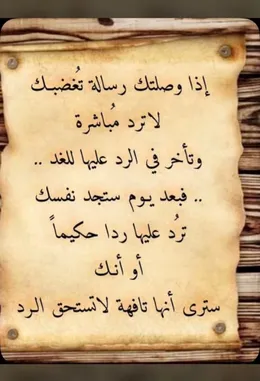 إذا وصلتك رسالة تُغضبك
لاترد مُباشرة
وتأخر في الرد عليها للغد ..
.. فبعد يوم ستجد نفسك
ترُد عليها ردا حكيماً
أو أنك
سترى أنها تافهة لاتستحق الرد